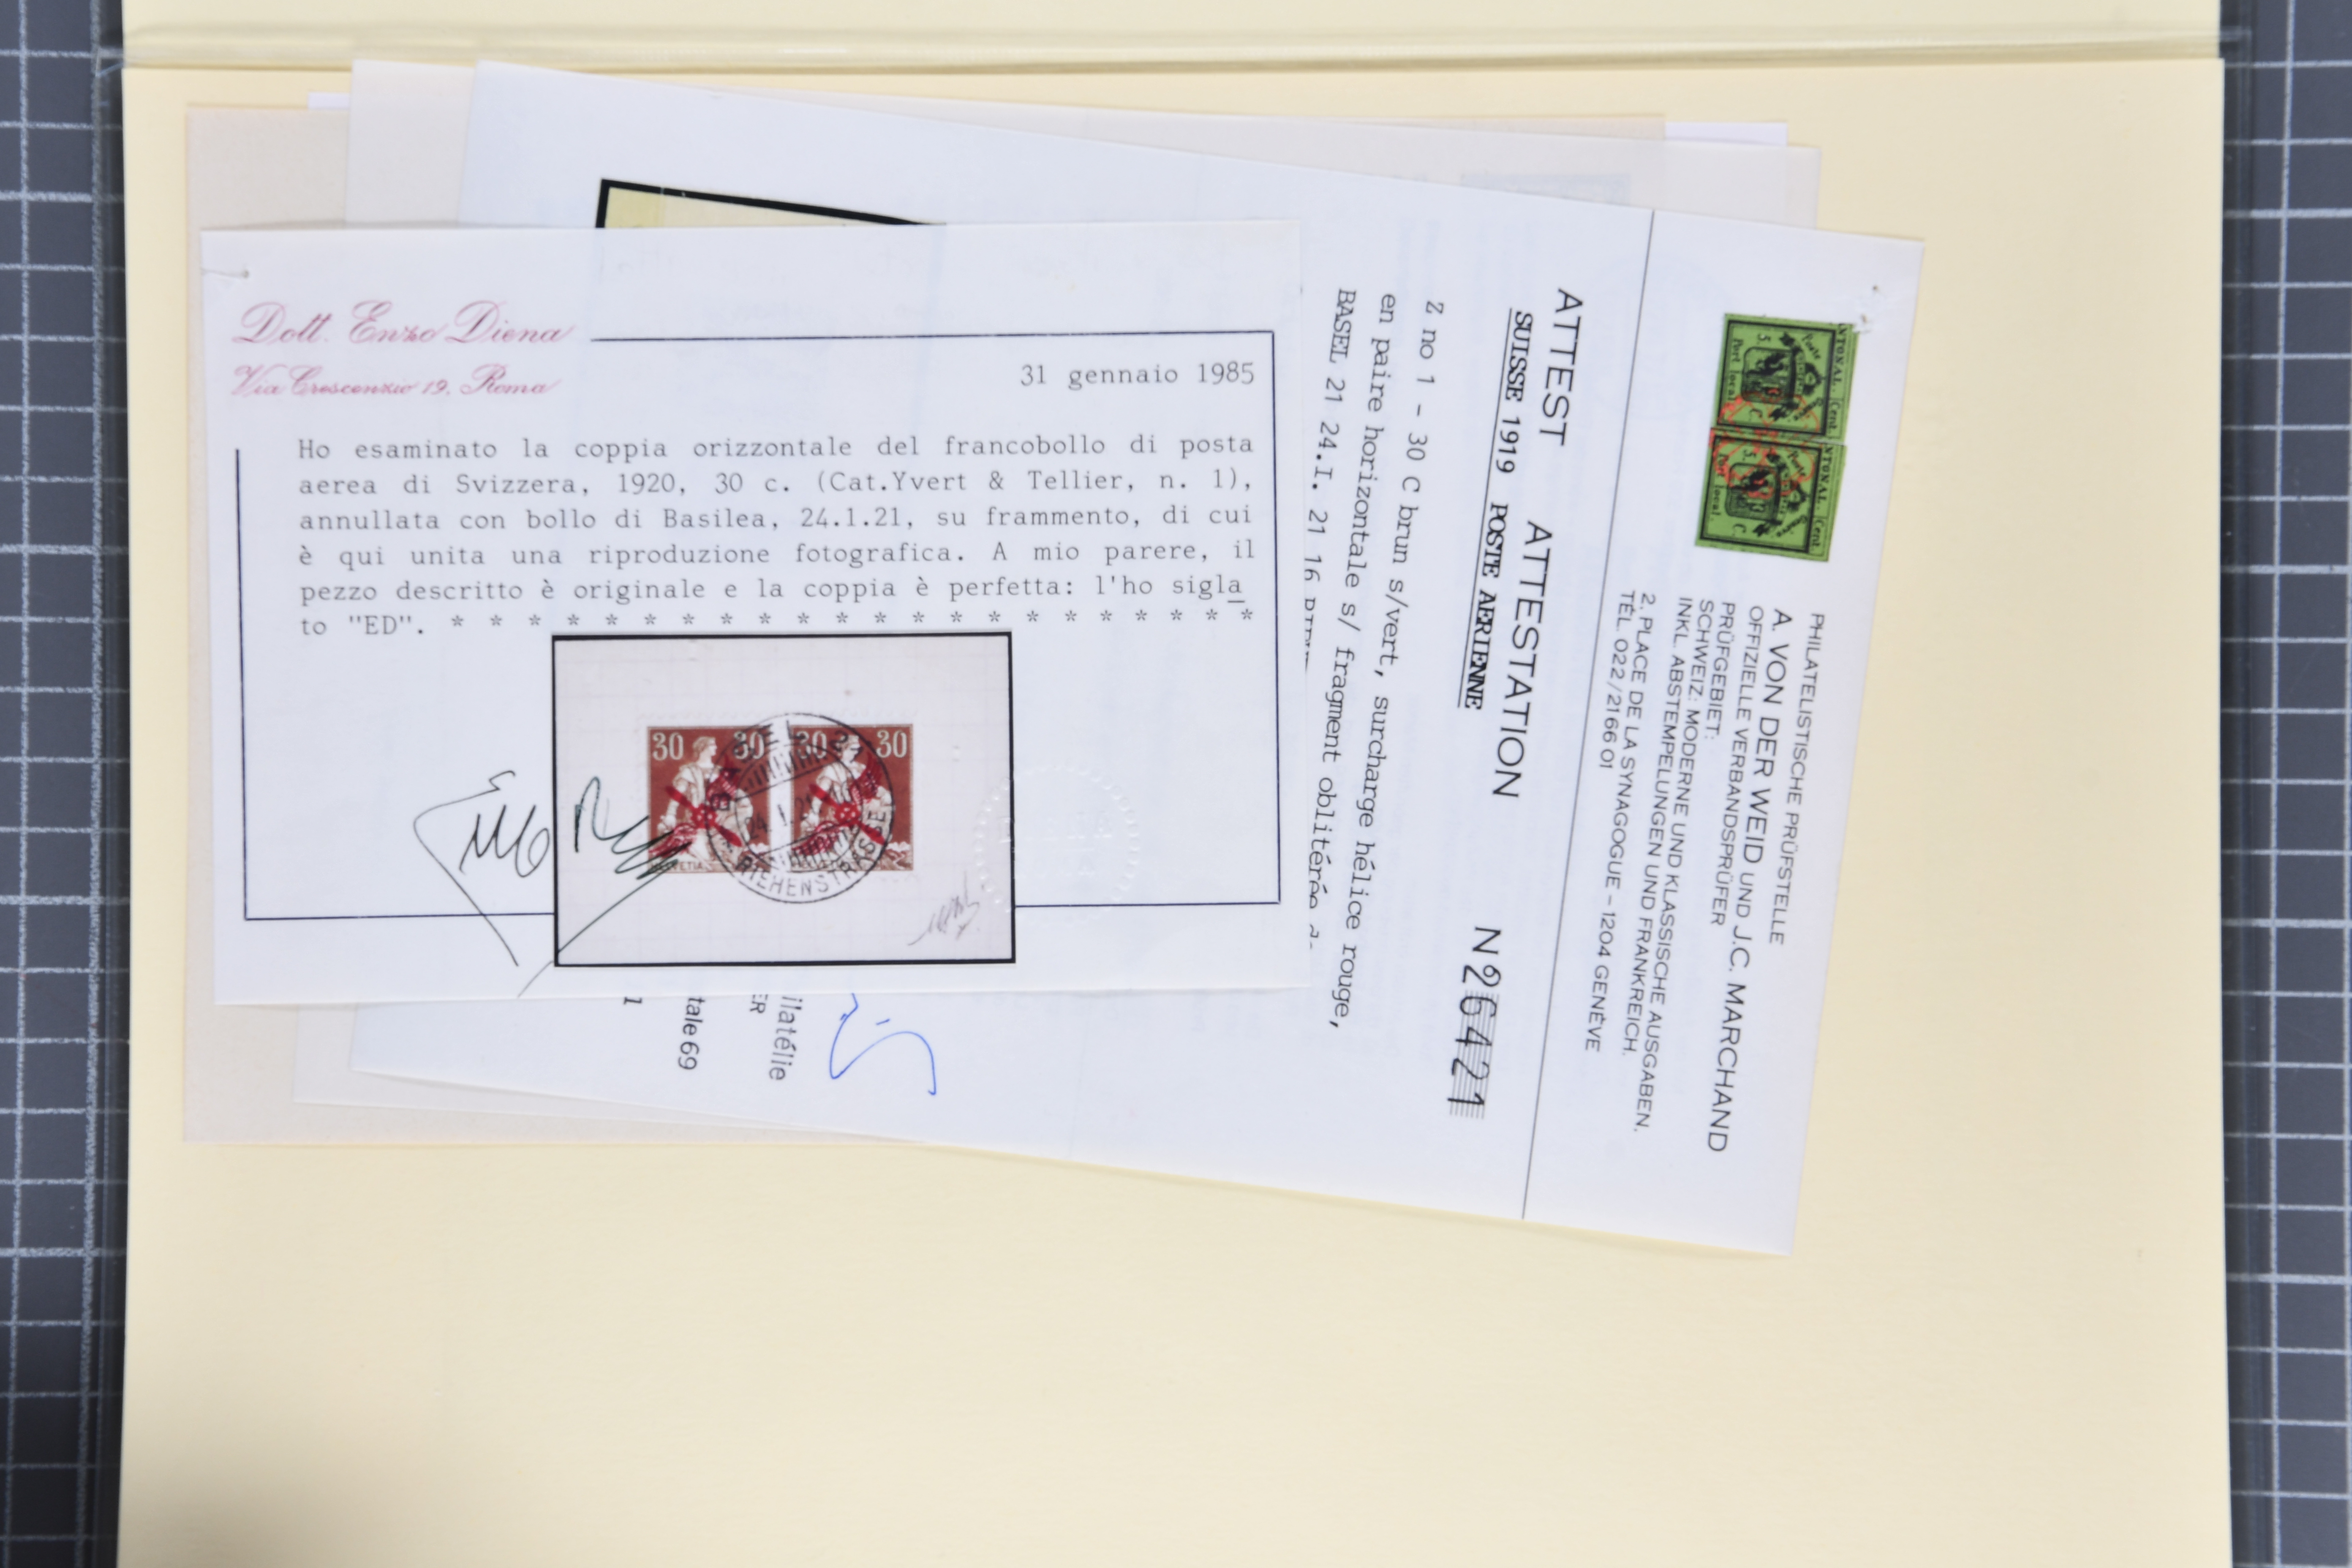 Dott. Enzo Diena
Via Crescenzio 19, Roma
31 gennaio 1985
Ho esaminato la coppia orizzontale del francobollo di posta
aerea di Svizzera, 1920, 30 c. (Cat.Yvert & Tellier, n. 1),
annullata con bollo di Basilea, 24.1.21, su frammento, di cui
è qui unita una riproduzione fotografica. A mio parere, il
pezzo descritto è originale e la coppia è perfetta: l'ho sigla_
to "ED". * * * * * * * * * * * * * * * * * * * * * *
30 30 30 30
HELVETIA
RIEHENSTRASSE
PHILATELISTISCHE PRÜFSTELLE
A. VON DER WEID UND J.C. MARCHAND
OFFIZIELLE VERBANDSPRÜFER
PRÜFGEBIET:
SCHWEIZ: MODERNE UND KLASSISCHE AUSGABEN
INKL. ABSTEMPELUNGEN UND FRANKREICH.
2, PLACE DE LA SYNAGOGUE – 1204 GENÈVE
TÉL. 022/21 66 01
Poste
Port local
Cent.
5. C.
Port local
Cent.
ATTEST ATTESTATION Nº 26421
SUISSE 1919 POSTE AERIENNE
Z no 1 - 30 C brun s/vert, surcharge hélice rouge,
en paire horizontale s/ fragment oblitérée de
BASEL 21 24.I. 21 16
ilatélie
ER
tale 69
1